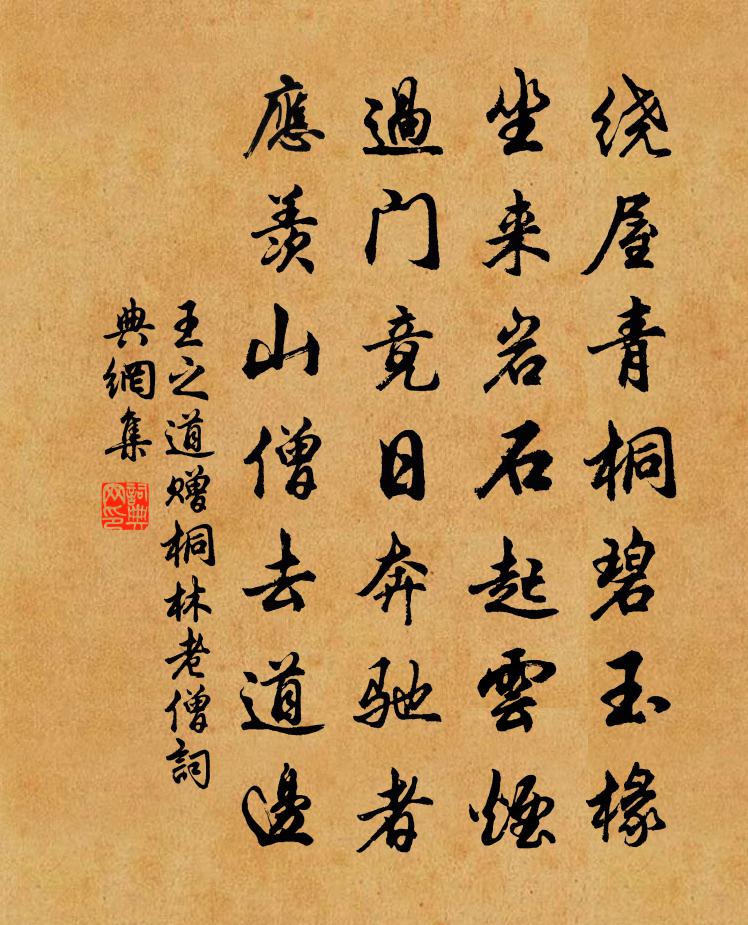 绕屋青桐碧玉椽
坐来岩石起雲煙
過门竟日奔驰者
應羨山僧去道邊
王之道赠桐林老僧詞
典網集
詞典
网印